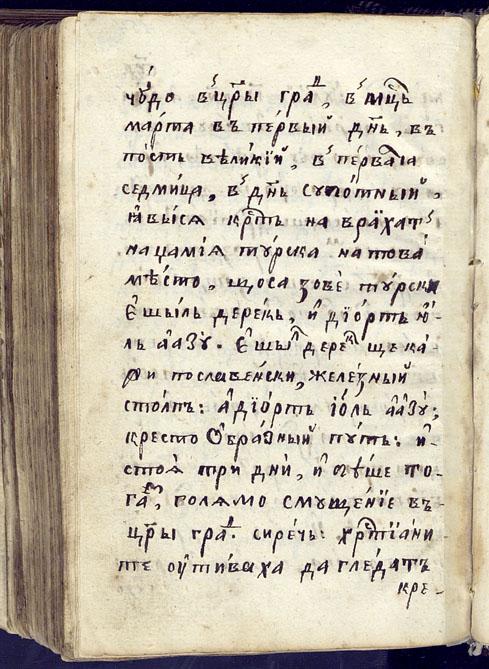 чꙋ́до в̾ цр҃ы гра́дⷣ, в̾ мцⷭ҇ъ
ма́рта въ пе́рвый дн҃ь, въ
по́стъ вели́кїй, в̾ пе́рваѧ
седмица, в̾ дн҃ь сꙋпо́тный,
ꙗ҆ви́сѧ крⷭ҇тъ на вра́хат̾
на цами́ѧ тꙋ́рска на това̀
мѣ́сто, що са зовѐ тꙋ́рски
Є҆шы́лъ дере́къ, и҆ дїо́ртъ ю҆́-
лъ а҆а́зꙋ̀. Є҆шы́лⷧ дере́кⷦ ще ка́-
ри пославе́нски, желѣ́зный
сто́лпъ: а҆ дїо́ртъ їо́лъ а҆а́зꙋ̀,
кресто ѻ҆бра́зный пꙋ́ть: и҆
стоѧ̀ три днѝ, и҆ бѣ́ше то-
га́ꙁⷥ, голѧ́мо смꙋще́нїе въ
цр҃ы гра́дⷣ. сире́чь: хрⷭ҇тїа́ни
те ѹ҆ти́ваха да гле́датъ
кре-